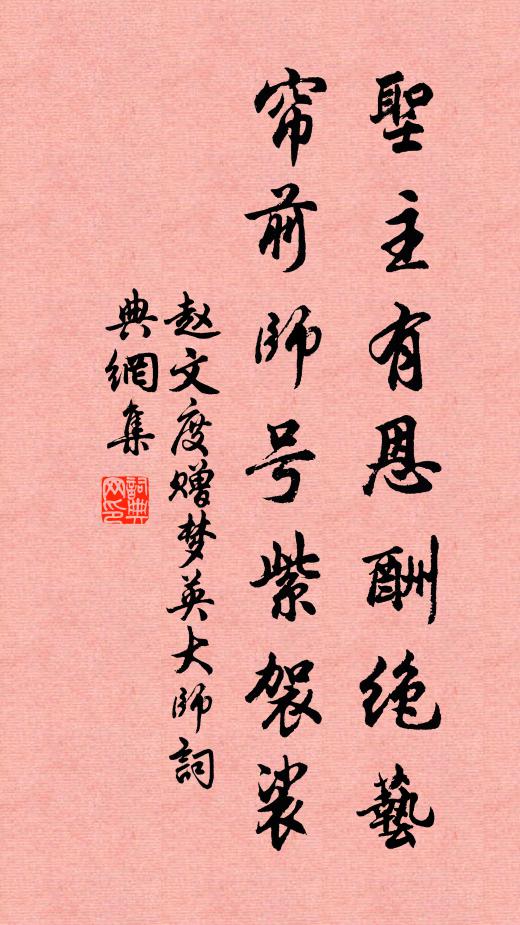 聖主有恩酬绝藝
帘前師号紫袈裟
赵文度赠梦英大师詞
典網集
詞典网印